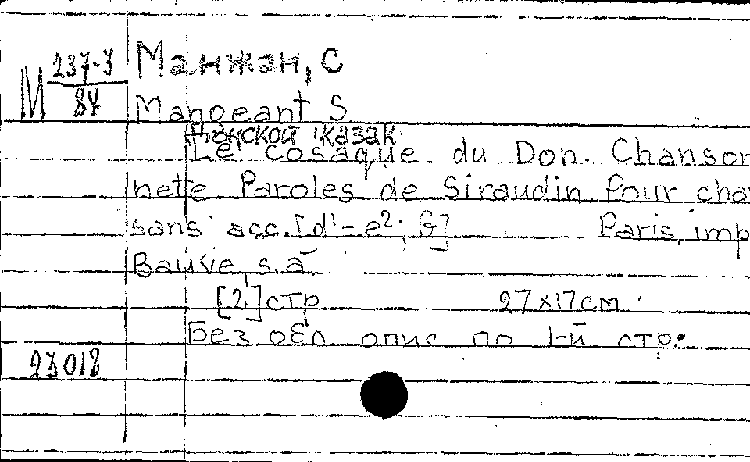 М 237-3/84 Манжан, С
Mangeant S.
Донской казак
Le Cosaque du Don. Chanson
nette Paroles de Siraudin pour cha
sans acc. [d¹-e²; G] Paris, imp
Bauve, s.a.
[2] стр 27x17см.
Без обл. опис по 1-й стр.
23018